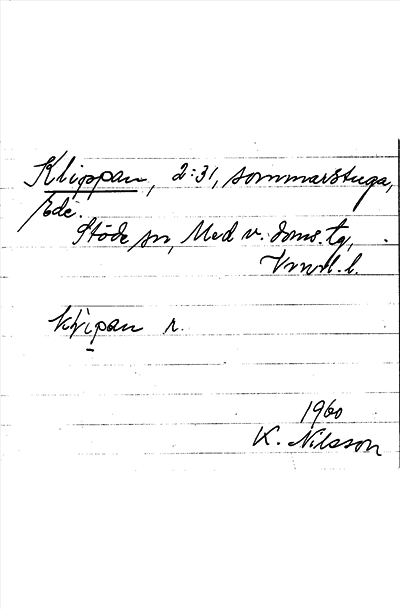 Klippan, 2:31, sommarstuga,
Stöde sn, Med v. doms. tg,
Vrnrl. l.
r.
1960
K. Nilsson